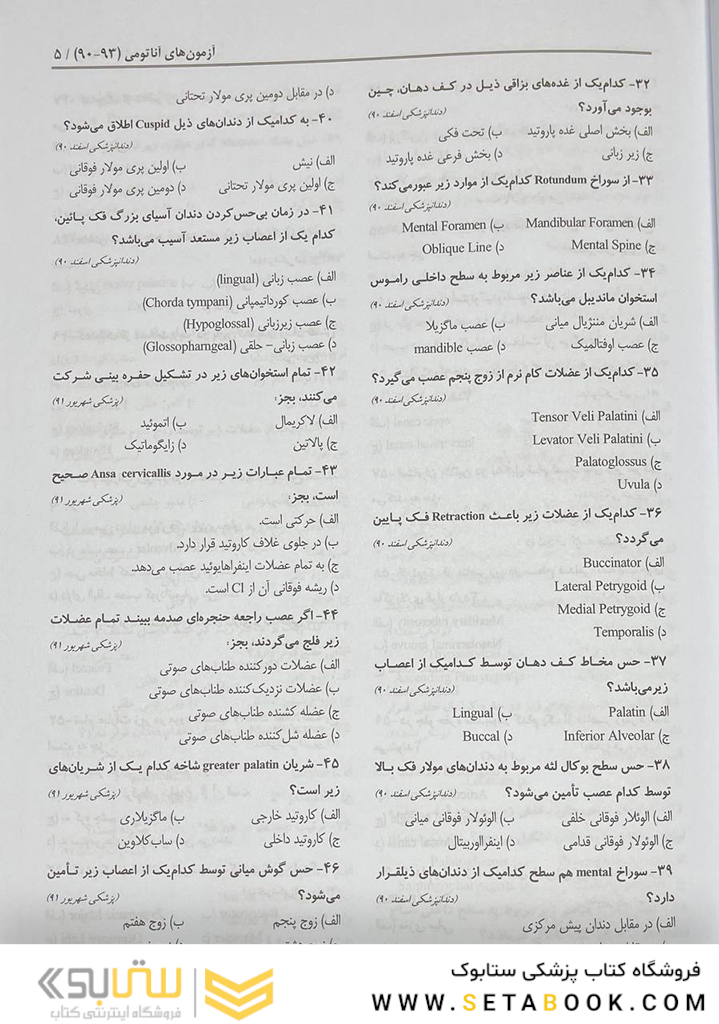 آزمون‌های آناتومی (۹۳-۹۰) / ۵
۳۲- کدام‌یک از غده‌های بزاقی ذیل در کف دهان، چین
بوجود می‌آورد؟ (دندانپزشکی اسفند ۹۰)
الف) بخش اصلی غده پاروتید ب) تحت فکی
ج) زیر زبانی د) بخش فرعی غده پاروتید
۳۳- از سوراخ Rotundum کدام‌یک از موارد زیر عبورمی‌کند؟
(دندانپزشکی اسفند ۹۰)
الف) Mandibular Foramen ب) Mental Foramen
ج) Mental Spine د) Oblique Line
۳۴- کدام‌یک از عناصر زیر مربوط به سطح داخلی راموس
استخوان ماندیبل می‌باشد؟ (دندانپزشکی اسفند ۹۰)
الف) شریان مننژیال میانی ب) عصب ماگزیلا
ج) عصب اوفتالمیک د) عصب mandible
۳۵- کدام‌یک از عضلات کام نرم از زوج پنجم عصب می‌گیرد؟
(دندانپزشکی اسفند ۹۰)
الف) Tensor Veli Palatini
ب) Levator Veli Palatini
ج) Palatoglossus
د) Uvula
۳۶- کدام‌یک از عضلات زیر باعث Retraction فک پایین
می‌گردد؟ (دندانپزشکی اسفند ۹۰)
الف) Buccinator
ب) Lateral Petrygoid
ج) Medial Petrygoid
د) Temporalis
۳۷- حس مخاط کف دهان توسط کدامیک از اعصاب
زیرمی‌باشد؟ (دندانپزشکی اسفند ۹۰)
الف) Palatin ب) Lingual
ج) Inferior Alveolar د) Buccal
۳۸- حس سطح بوکال لثه مربوط به دندان‌های مولار فک بالا
توسط کدام عصب تأمین می‌شود؟ (دندانپزشکی اسفند ۹۰)
الف) الوئلار فوقانی خلفی ب) الوئولار فوقانی میانی
ج) الوئولار فوقانی قدامی د) اینفرااوربیتال
۳۹- سوراخ mental هم سطح کدامیک از دندان‌های ذیل‌قرار
دارد؟ (دندانپزشکی اسفند ۹۰)
الف) در مقابل دندان پیش مرکزی
د) در مقابل دومین پری مولار تحتانی
۴۰- به کدامیک از دندان‌های ذیل Cuspid اطلاق می‌شود؟
(دندانپزشکی اسفند ۹۰)
الف) نیش ب) اولین پری مولار فوقانی
ج) اولین پری مولار تحتانی د) دومین پری مولار فوقانی
۴۱- در زمان بی‌حس‌کردن دندان آسیای بزرگ فک پائین،
کدام یک از اعصاب زیر مستعد آسیب می‌باشد؟
(دندانپزشکی اسفند ۹۰)
الف) عصب زبانی (lingual)
ب) عصب کورداتیمپانی (Chorda tympani)
ج) عصب زیرزبانی (Hypoglossal)
د) عصب زبانی- حلقی (Glossopharngeal)
۴۲- تمام استخوان‌های زیر در تشکیل حفره بینی شرکت
می‌کنند، بجز: (پزشکی شهریور ۹۱)
الف) لاکریمال ب) اتموئید
ج) پالاتین د) زایگوماتیک
۴۳- تمام عبارات زیر در مورد Ansa cervicallis صحیح
است، بجز: (پزشکی شهریور ۹۱)
الف) حرکتی است.
ب) در جلوی غلاف کاروتید قرار دارد.
ج) به تمام عضلات اینفراهایوئید عصب می‌دهد.
د) ریشه فوقانی آن از Cl است.
۴۴- اگر عصب راجعه حنجره‌ای صدمه ببیند تمام عضلات
زیر فلج می‌گردند، بجز: (پزشکی شهریور ۹۱)
الف) عضلات دورکننده طناب‌های صوتی
ب) عضلات نزدیک‌کننده طناب‌های صوتی
ج) عضله کشنده طناب‌های صوتی
د) عضله شل‌کننده طناب‌های صوتی
۴۵- شریان greater palatin شاخه کدام یک از شریان‌های
زیر است؟ (پزشکی شهریور ۹۱)
الف) کاروتید خارجی ب) ماگزیلاری
ج) کاروتید داخلی د) ساب‌کلاوین
۴۶- حس گوش میانی توسط کدام‌یک از اعصاب زیر تأمین
می‌شود؟ (پزشکی شهریور ۹۱)
الف) زوج پنجم ب) زوج هفتم
فروشگاه کتاب پزشکی ستابوک
WWW.SETABOOK.COM
ستابوک
فروشگاه اینترنتی کتاب